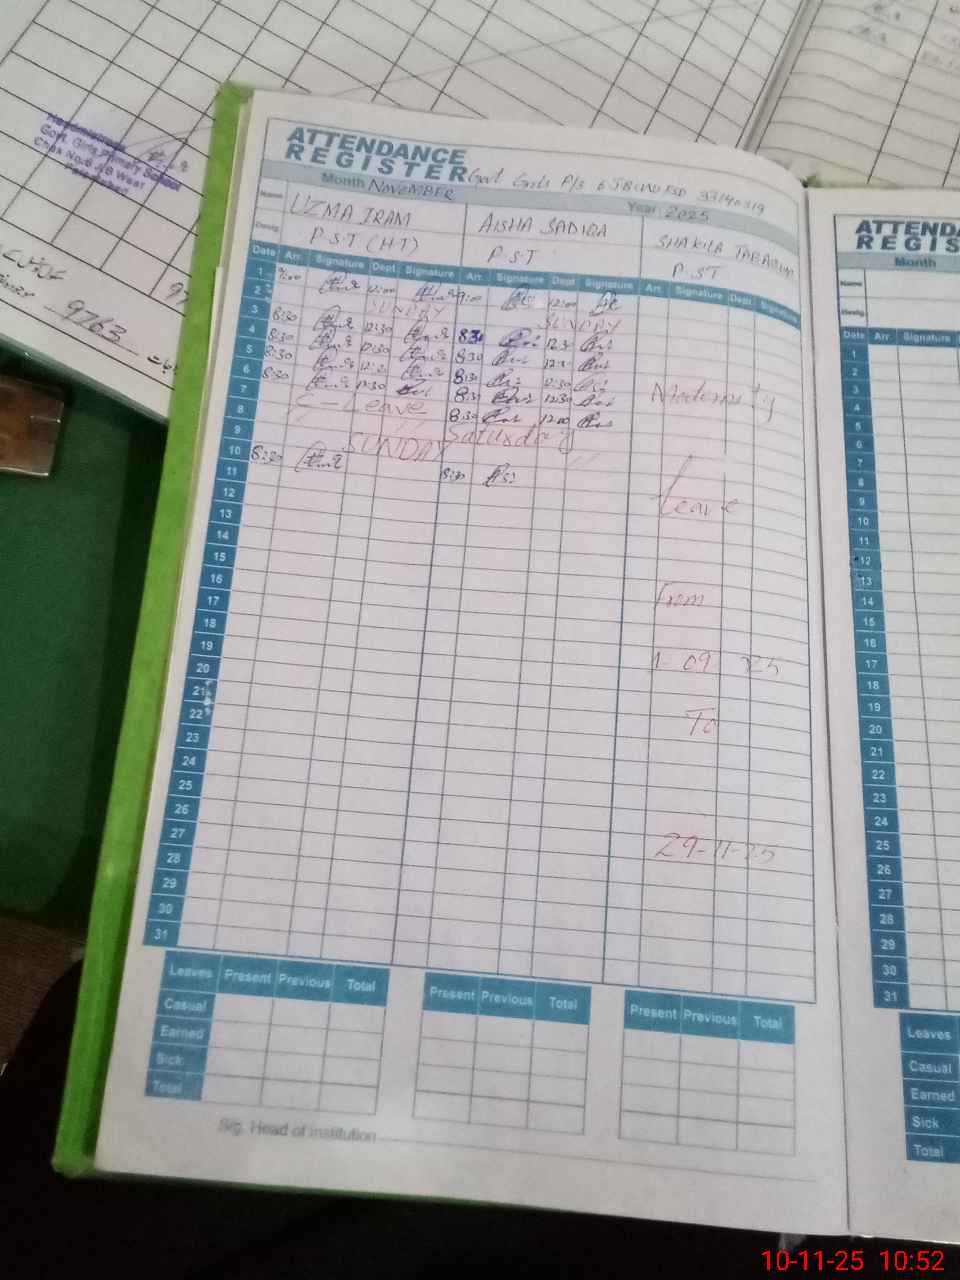 Headmistress
Govt. Girls Primary School
Chak No.6 J/B West
Faisalabad
9763
ATTENDANCE
REGISTER
Govt Girls P/S 6 JB(W) FSD 33140319
Month NOVEMBER
Year 2025
Name UZMA IRAM AISHA SADIQA SHAKILA TABASUM
Desig. P.S.T (HT) P.S.T P.ST
Date Arr. Signature Dept. Signature Arr. Signature Dept. Signature Arr. Signature Dept. Signature
1 9:00 12:00 9:00 12:00
2 SUNDAY SUNDAY
3 8:30 12:30 8:30 12:30
4 8:30 12:30 8:30
5 8:30 12:30 8:30 12:30
6 8:30 12:30 8:30 12:30
7 Leave 8:30 12:00
8 Saturday
9 SUNDAY
10 8:30 8:30
11
12
13
14
15
16
17
18
19
20
21
22
23
24
25
26
27
28
29
30
31
Maternity
Leave
From
1-09 25
To
29-11-25
Leaves Present Previous Total Present Previous Total Present Previous Total
Casual
Earned
Sick
Total
Sig. Head of institution
ATTENDA
REGIS
Month
Name
Desig.
Date Arr. Signature
1
2
3
4
5
6
7
8
9
10
11
12
13
14
15
16
17
18
19
20
21
22
23
24
25
26
27
28
29
30
31
Leaves
Casual
Earned
Sick
Total
10-11-25 10:52